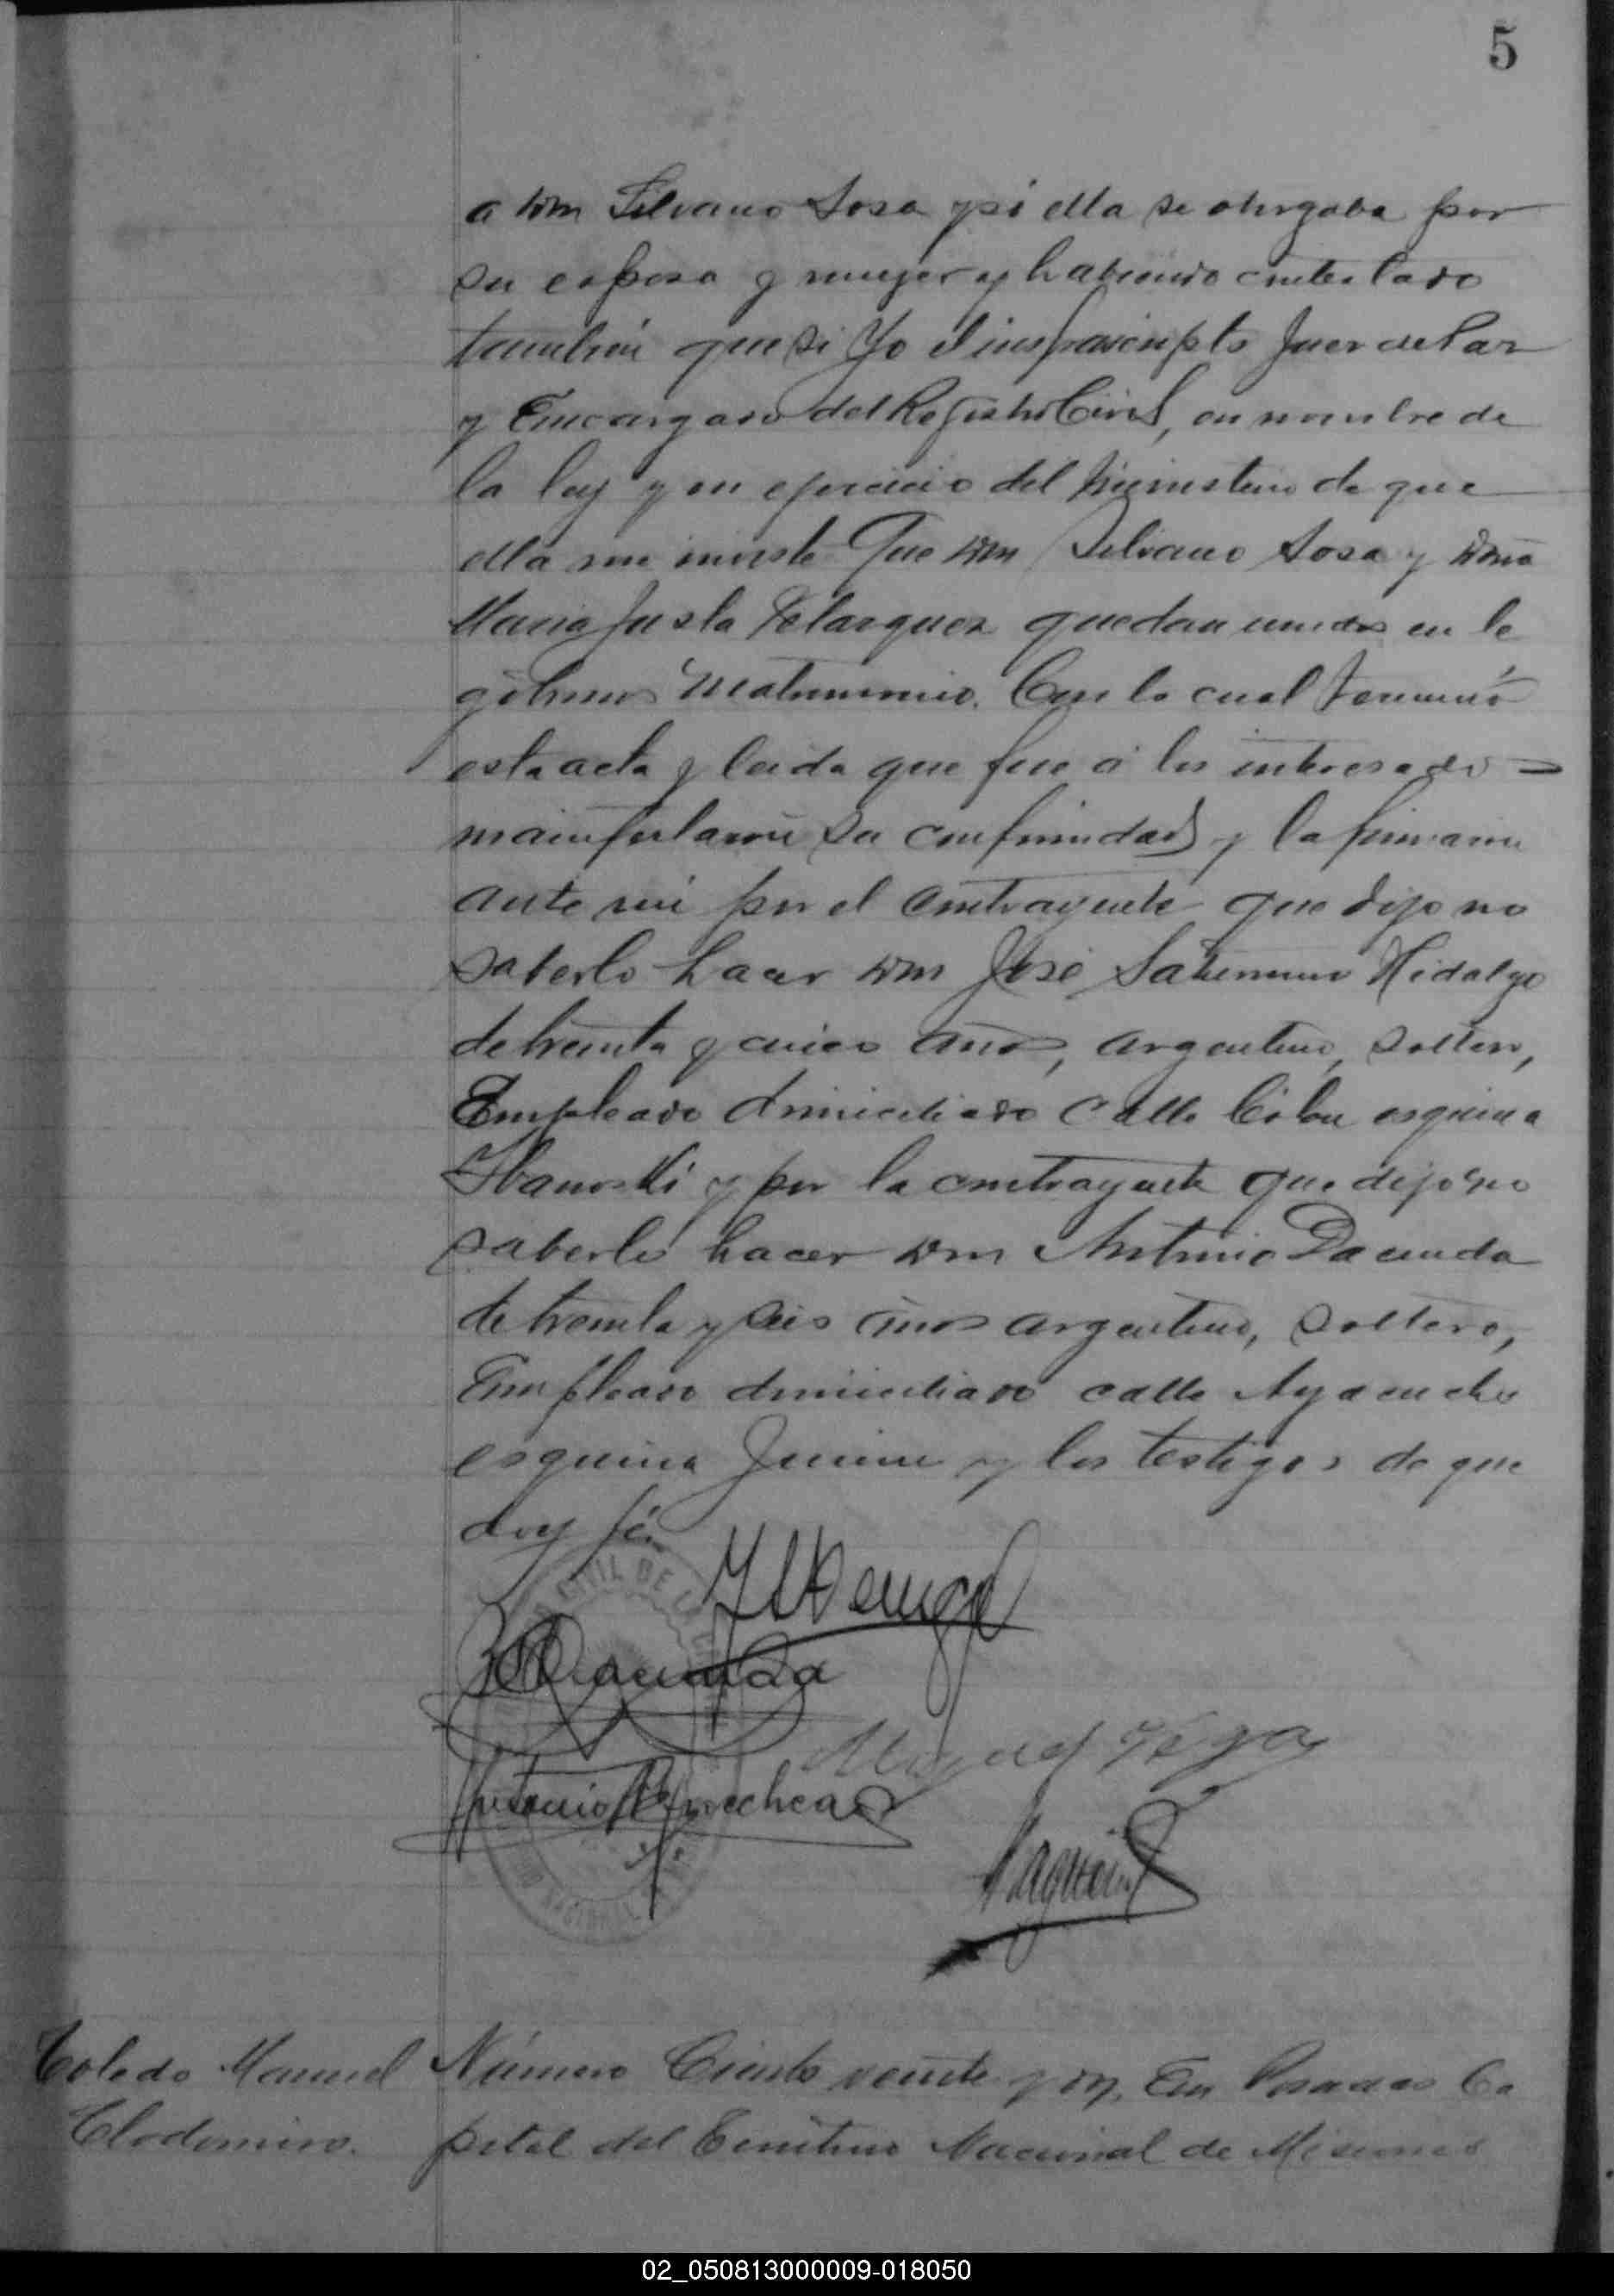 5
a don Silvano Sosa y si ella se otorgaba por
su esposa y mujer y habiendo contestado
tambien que si Yo el infrascripto Juez de Paz
y Encargado del Registro Civil, en nombre de
la ley y en ejercicio del Ministerio de que
ella me inviste Que don Silvano Sosa y doña
Maria Justa Velazquez quedan unidos en le
gitimo Matrimonio. Con lo cual terminó
esta acta y leida que fue á los interesados
manifestaron su conformidad y la firmaron
ante mi por el contrayente que dijo no
saberlo hacer don José Saturnino Hidalgo
de treinta y cinco años, argentino, soltero,
Empleado domiciliado calle Colon esquina
y por la contrayente que dijo no
saberlo hacer don Antonio Dacunda
de treinta y seis años argentino, soltero,
Empleado domiciliado calle Ayacucho
esquina Junin y los testigos de que
doy fé.
CIVIL DE
Dacunda
Miguel Vega
Toledo Manuel
Clodomiro.
Número Ciento veinte y dos. En Posadas Ca
pital del Territorio Nacional de Misiones
02_050813000009-018050